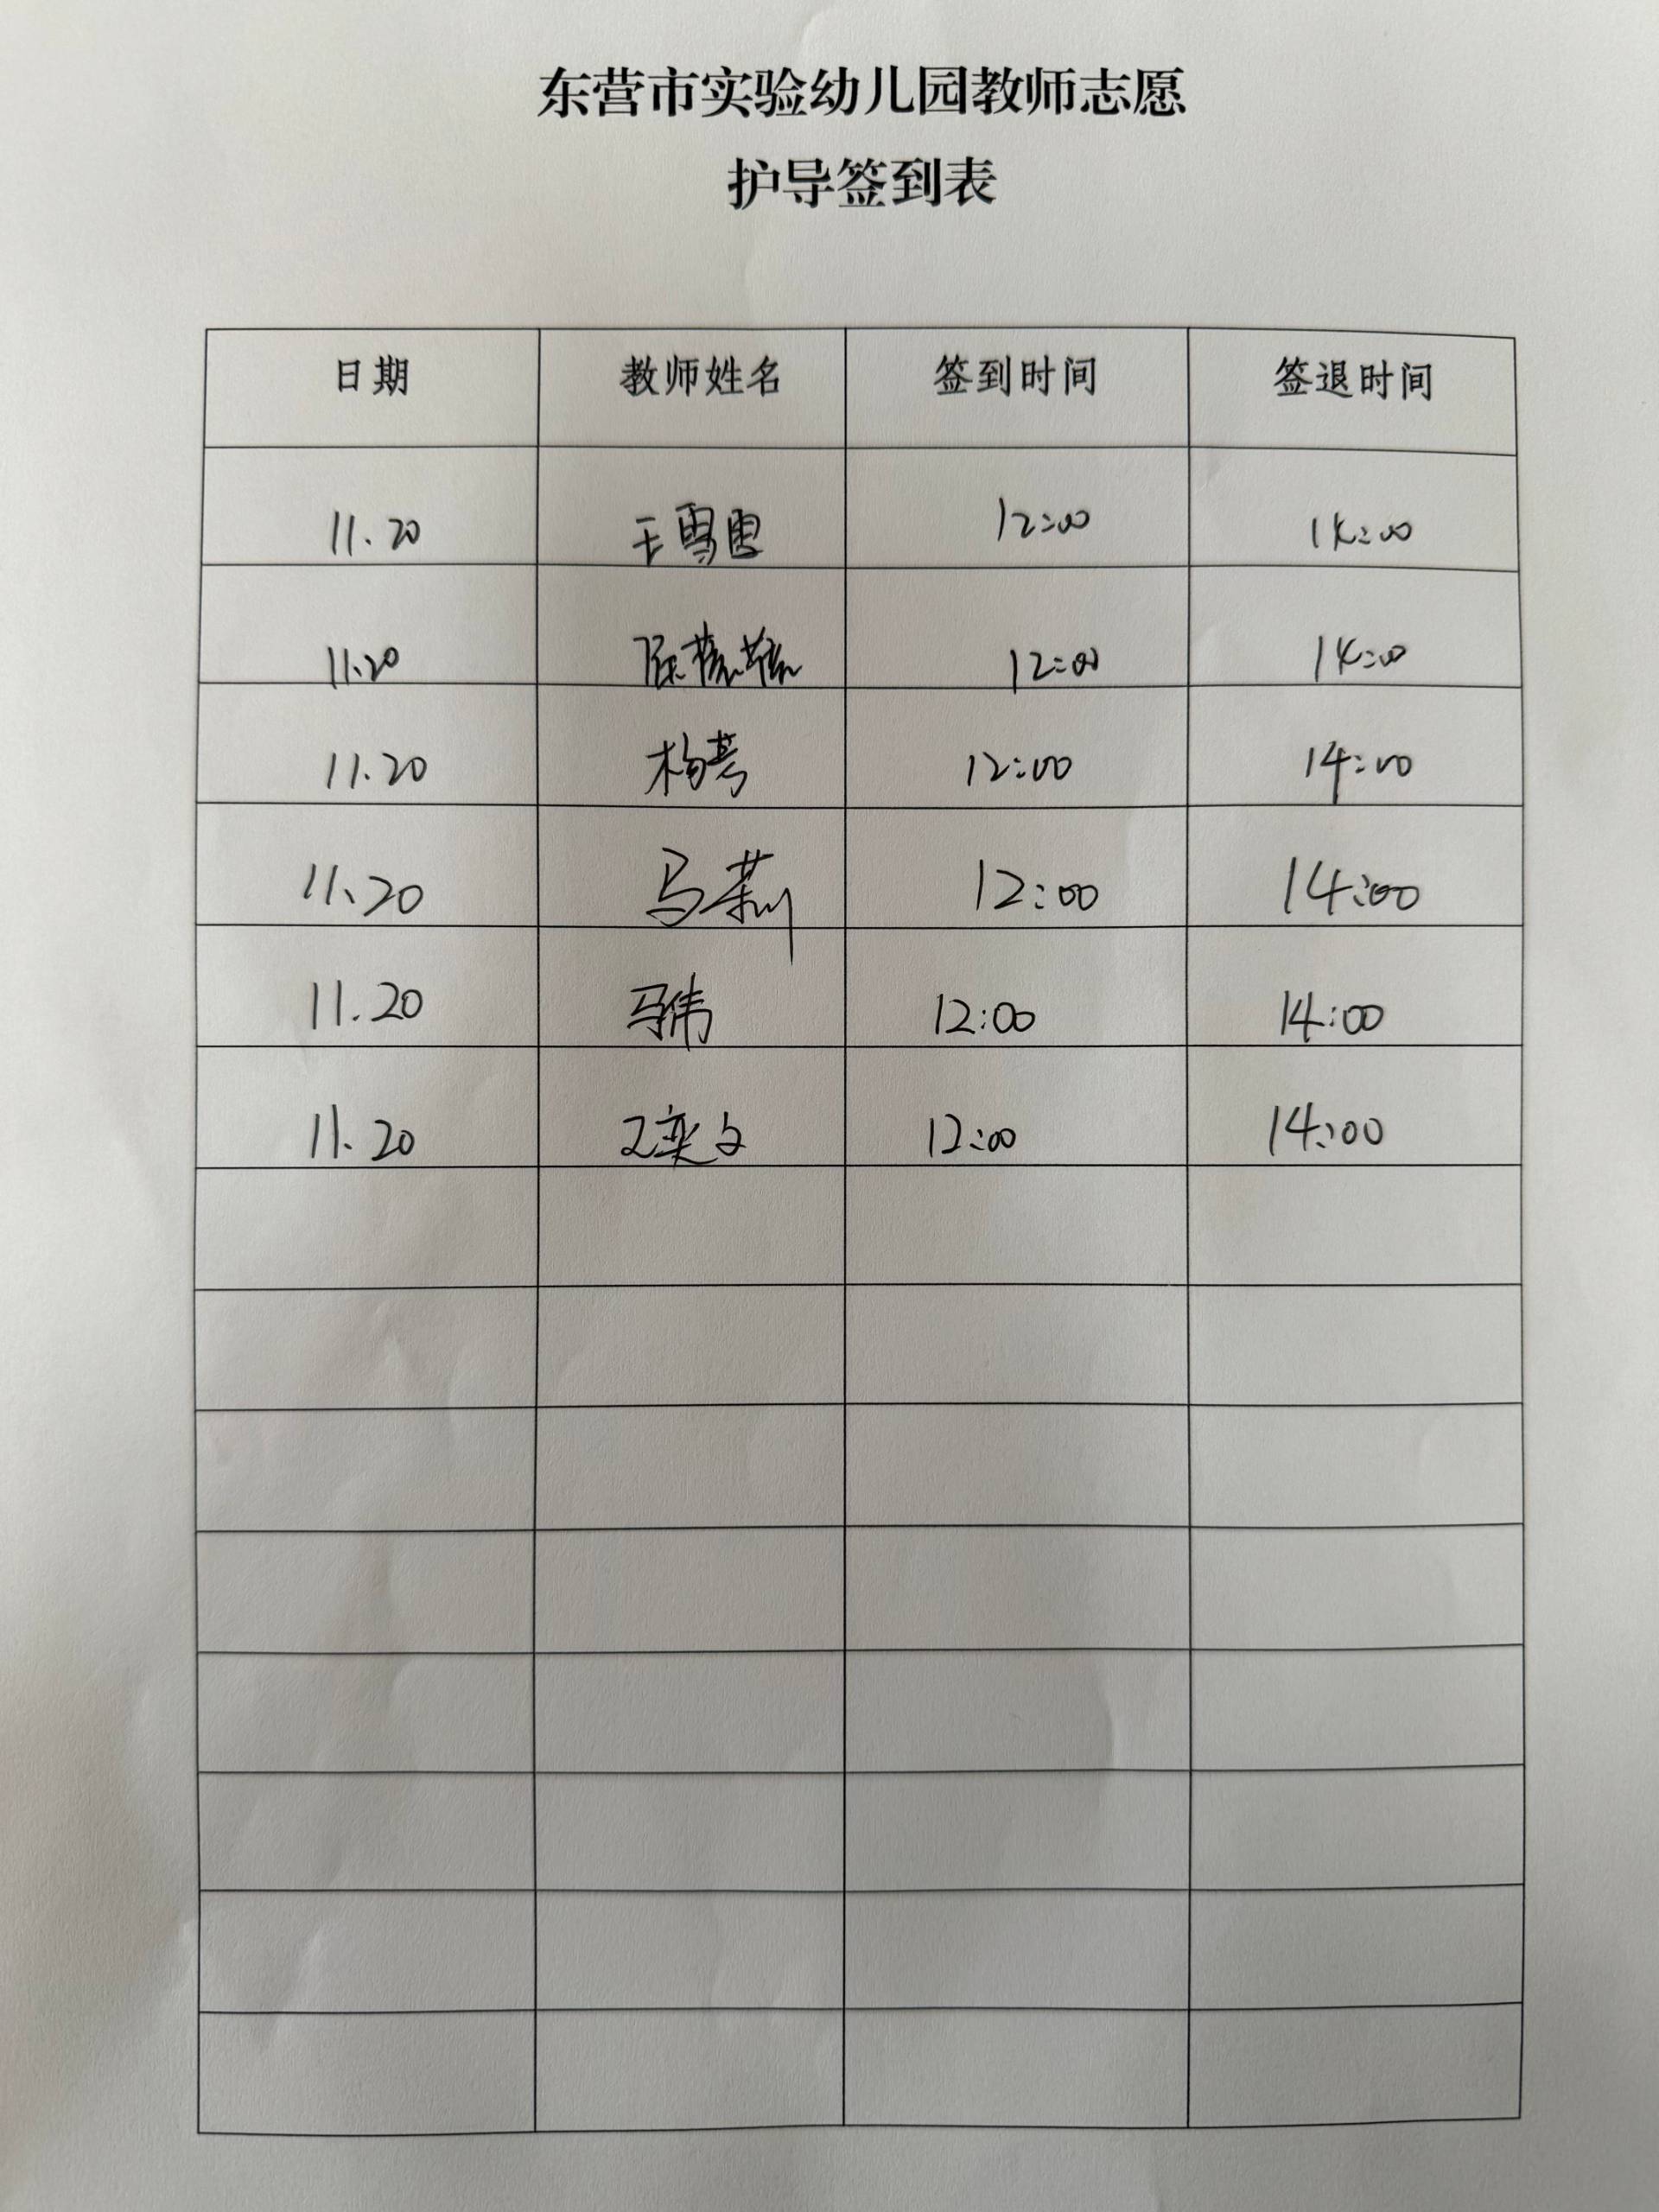 东营市实验幼儿园教师志愿
护导签到表
日期 教师姓名 签到时间 签退时间
11.20 王雪 12:00 14:00
11.20 12:00 14:00
11.20 杨芳 12:00 14:00
11.20 马莉 12:00 14:00
11.20 马伟 12:00 14:00
11.20 王奕文 12:00 14:00